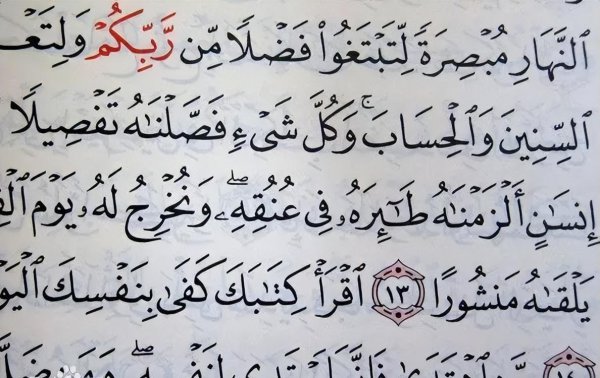 ٱلنَّهَارِ مُبۡصِرَةٗ لِّتَبۡتَغُواْ فَضۡلٗا مِّن رَّبِّكُمۡ وَلِتَعۡ
ٱلسِّنِينَ وَٱلۡحِسَابَۚ وَكُلَّ شَيۡءٖ فَصَّلۡنَٰهُ تَفۡصِيلٗا
إِنسَٰنٍ أَلۡزَمۡنَٰهُ طَٰٓئِرَهُۥ فِي عُنُقِهِۦۖ وَنُخۡرِجُ لَهُۥ يَوۡمَ ٱلۡقِ
يَلۡقَىٰهُ مَنشُورًا ١٣ ٱقۡرَأۡ كِتَٰبَكَ كَفَىٰ بِنَفۡسِكَ ٱلۡيَوۡ
١٤